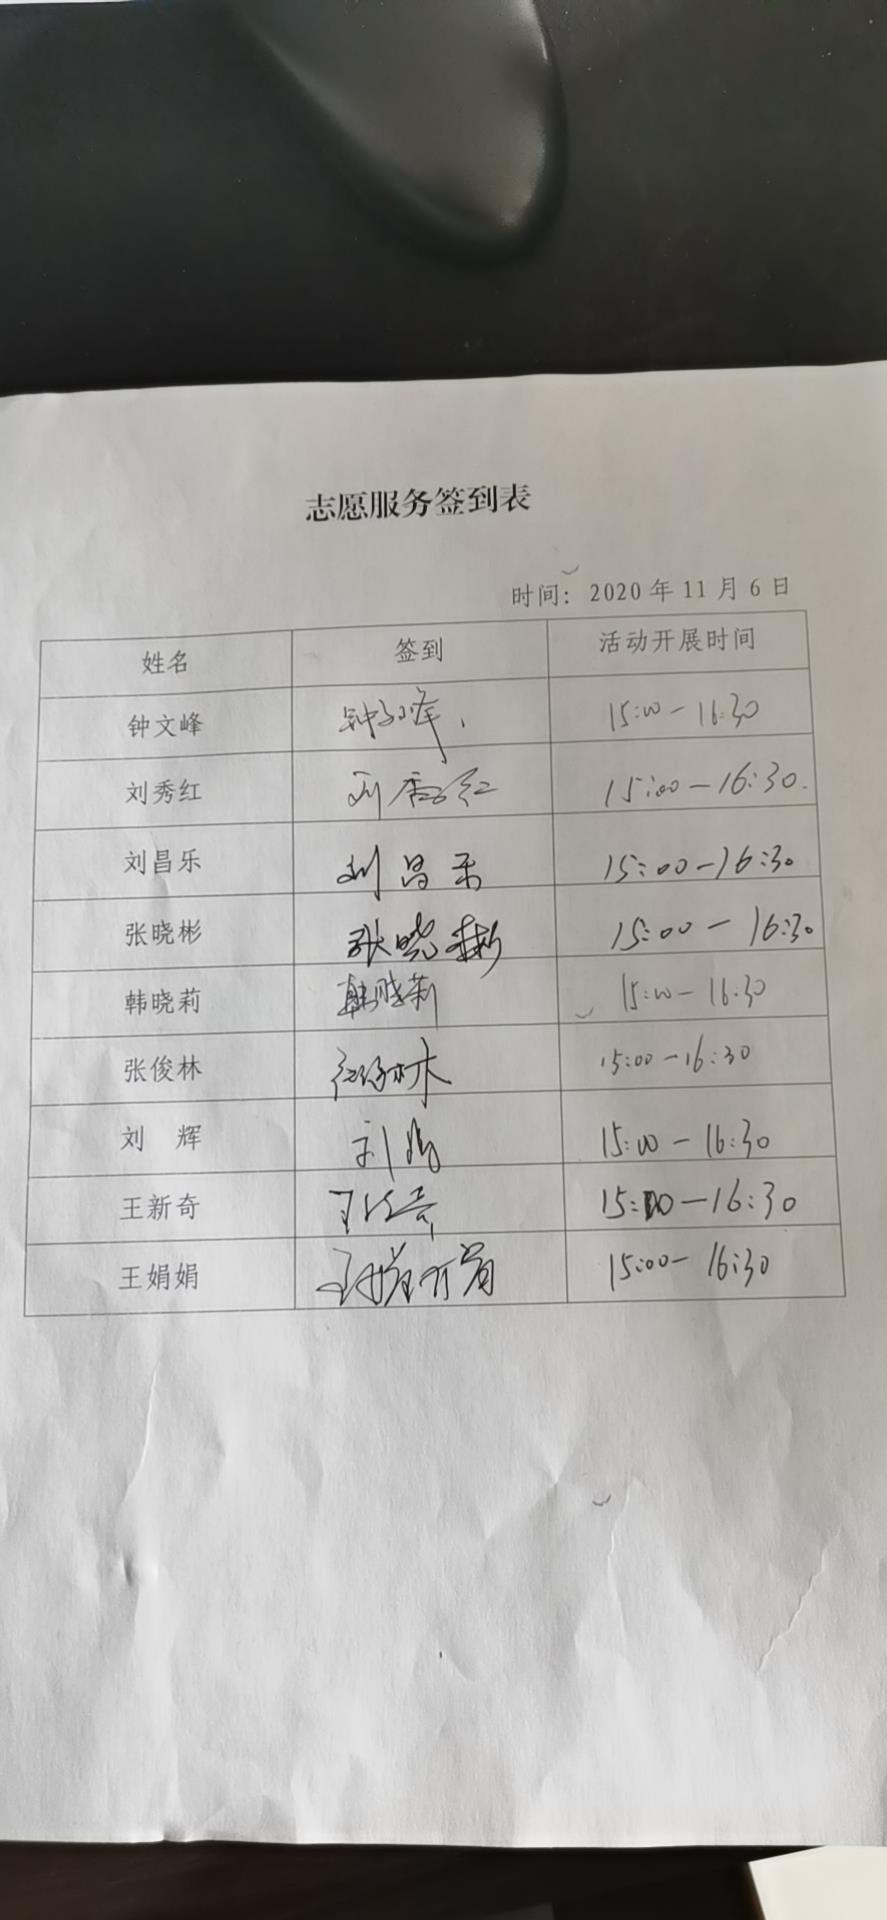 志愿服务签到表
时间：2020年11月6日
姓名 签到 活动开展时间
钟文峰 钟文峰 15:00-16:30
刘秀红 刘秀红 15:00-16:30.
刘昌乐 刘昌乐 15:00-16:30
张晓彬 张晓彬 15:00-16:30
韩晓莉 韩晓莉 15:00-16:30
张俊林 张俊林 15:00-16:30
刘 辉 刘辉 15:00-16:30
王新奇 王新奇 15:00-16:30
王娟娟 王娟娟 15:00-16:30